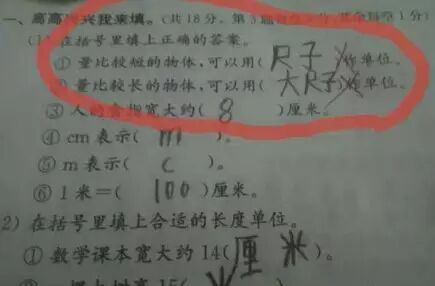 一、高高兴兴我来填。(共18分。第3题每空2分,其余每空1分)
(1)在括号里填上正确的答案。
① 量比较短的物体,可以用( 尺子 )作单位。
② 量比较长的物体,可以用( 大尺子 )作单位。
③ 人的食指宽大约( 8 )厘米。
④ cm 表示( m )。
⑤ m 表示( c )。
⑥ 1米=( 100 )厘米。
2)在括号里填上合适的长度单位。
① 数学课本宽大约14(厘米)。
15(米